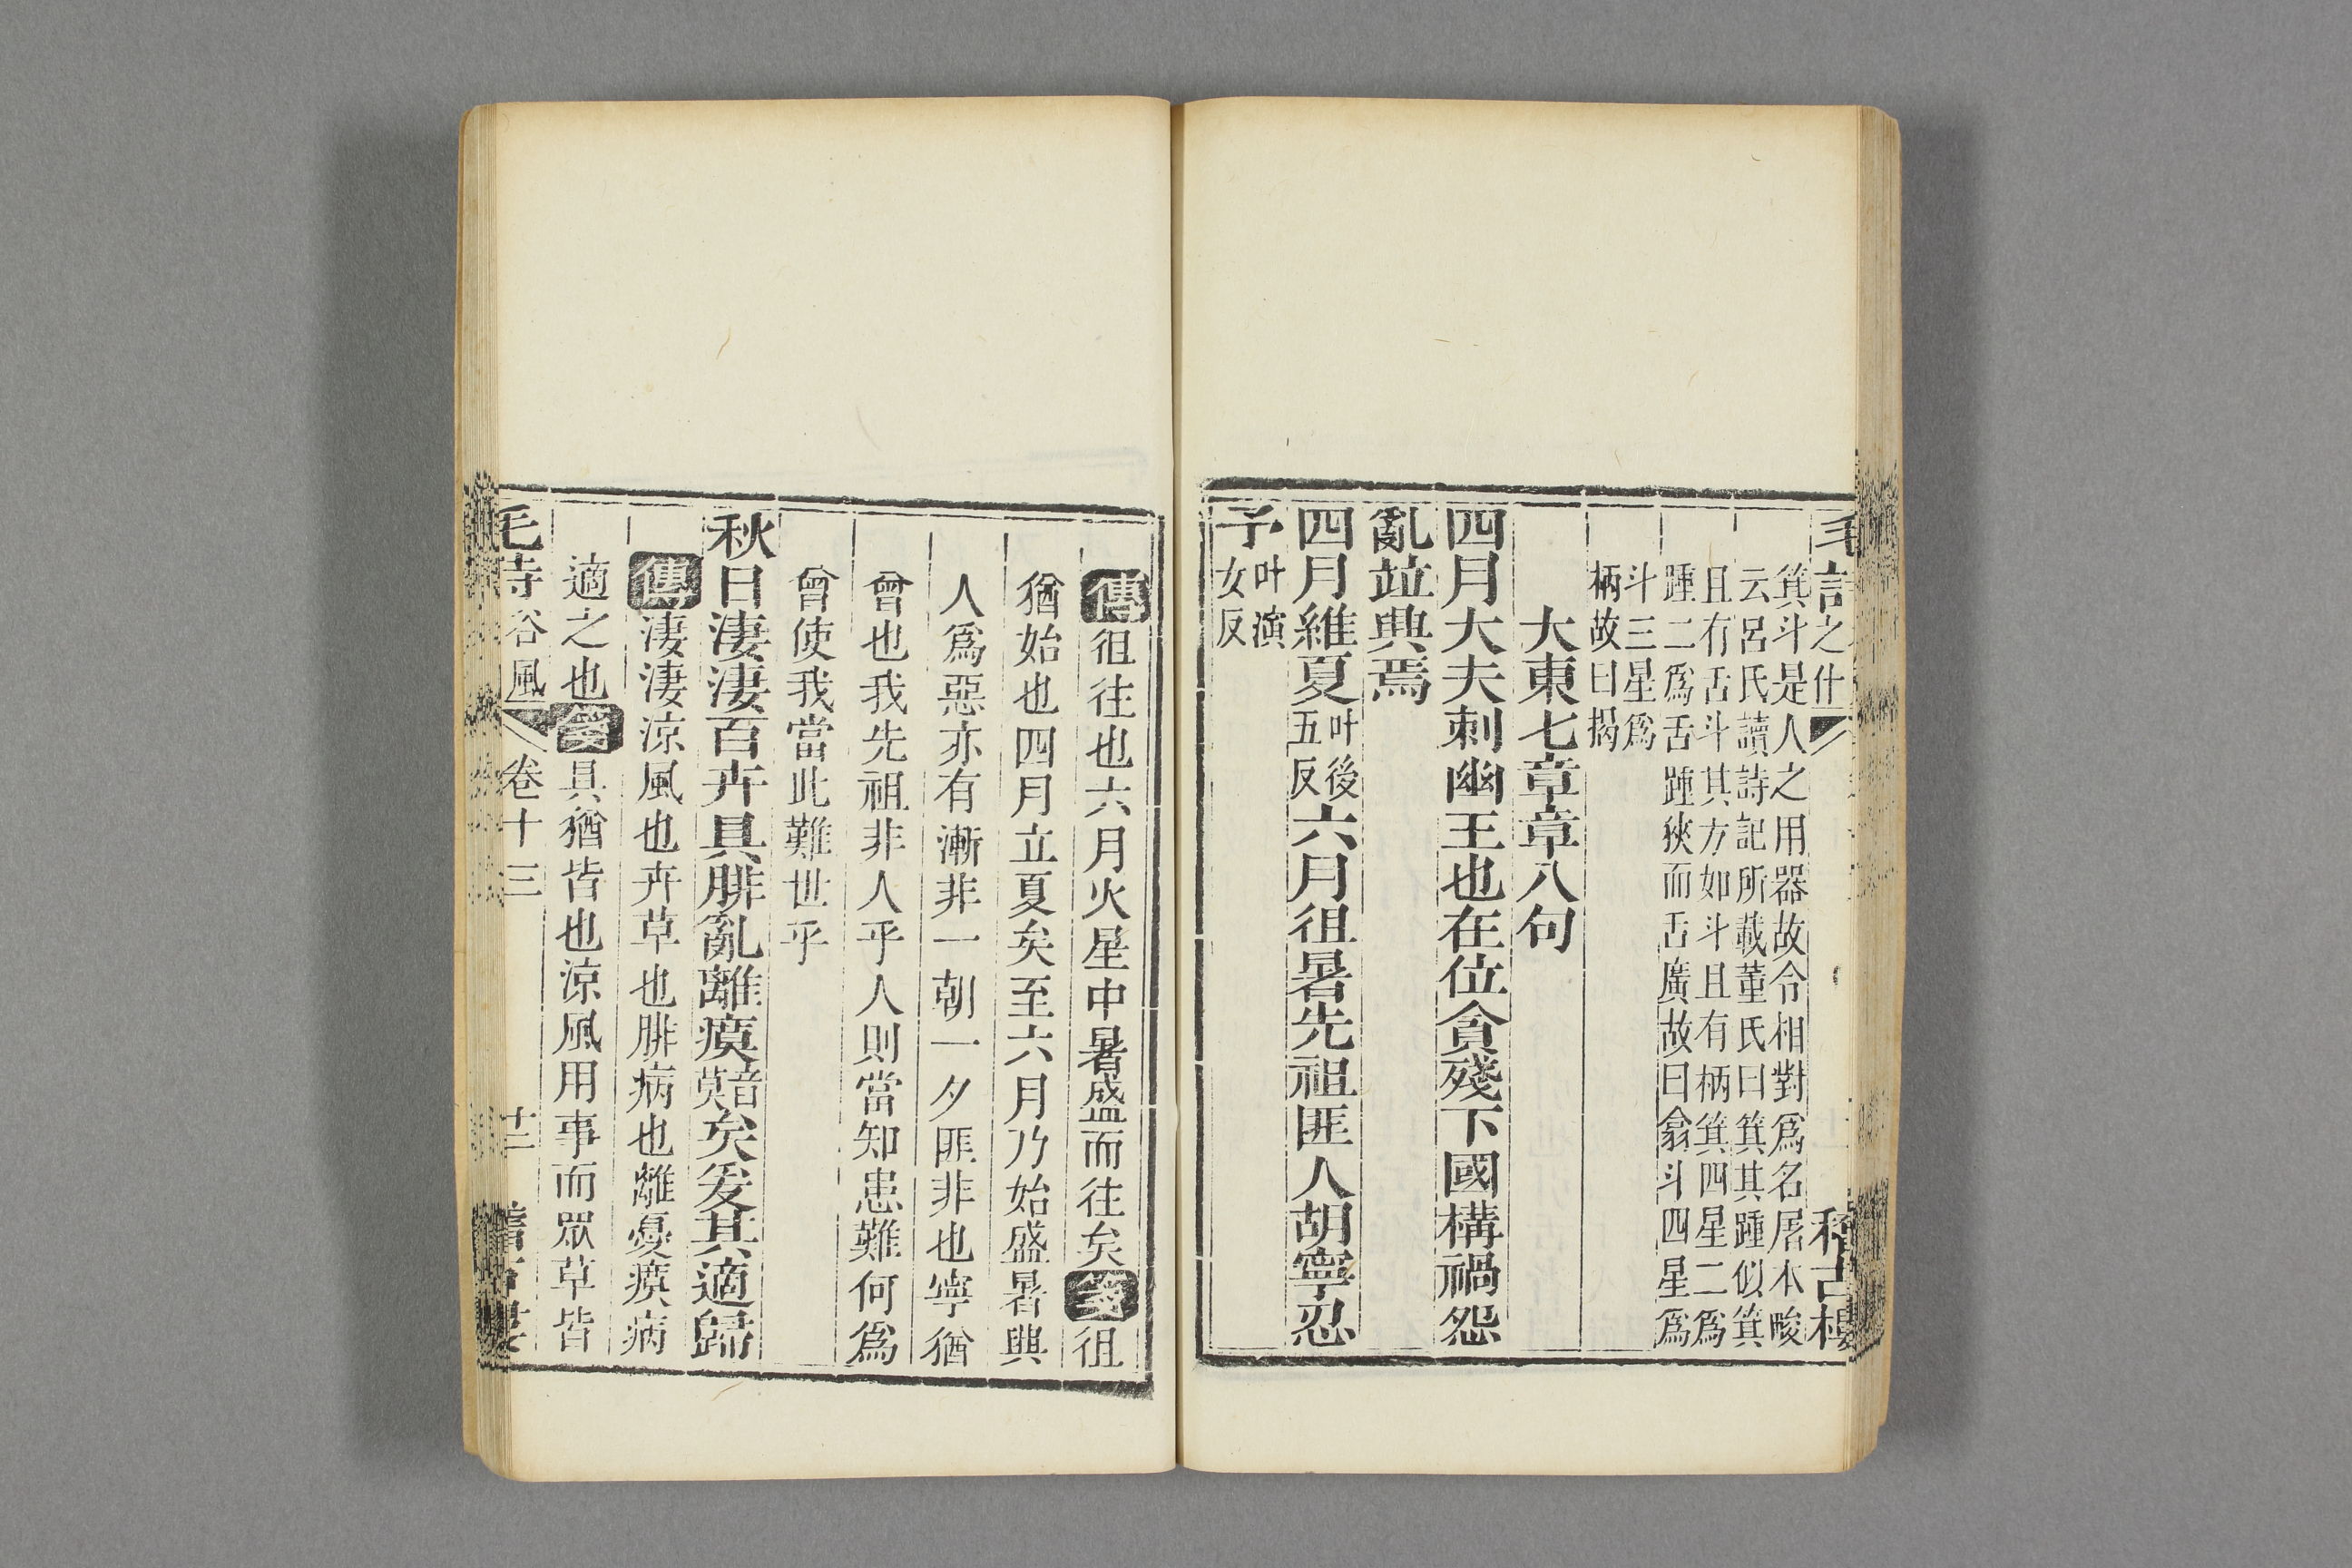 箕斗是人之用器故令相對爲名屠本畯
云呂氏讀詩記所載董氏曰箕其踵似箕
且有舌斗其方如斗且有柄箕四星二爲
踵二爲舌踵狹而舌廣故曰翕斗四星爲
斗三星爲
柄故曰揭
大東七章章八句
四月大夫刺幽王也在位貪殘下國構禍怨
亂竝興焉
四月維夏叶後五反六月徂暑先祖匪人胡寧忍
予叶演女反
傳徂往也六月火星中暑盛而往矣箋徂
猶始也四月立夏矣至六月乃始盛暑興
人爲惡亦有漸非一朝一夕匪非也寧猶
曾也我先祖非人乎人則當知患難何爲
曾使我當此難世乎
秋日淒淒百卉具腓亂離瘼音莫矣爰其適歸
傳淒淒涼風也卉草也腓病也離憂瘼病
適之也箋具猶皆也涼風用事而眾草皆
谷風 卷十三 十二